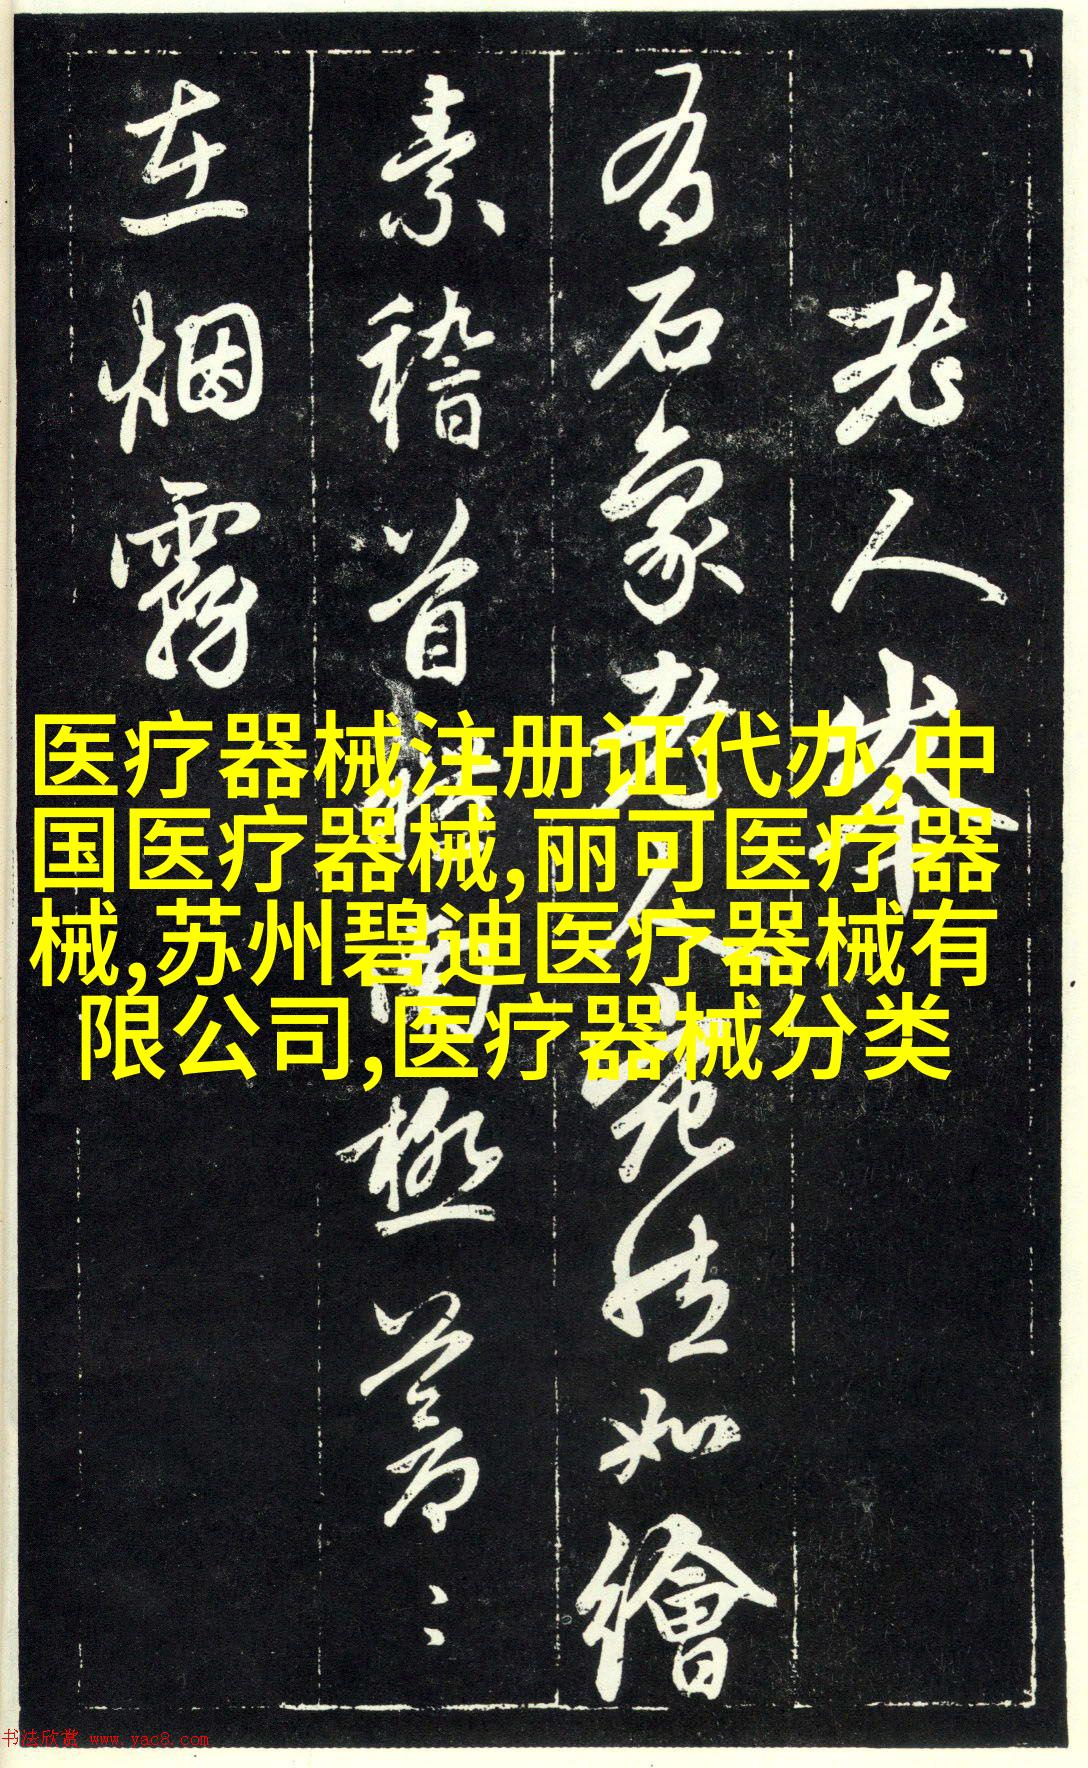 老人峯
有石象老人宛然如繪
素稽首
極蒼〻
在烟霧
医疗器械注册证代办,中
国医疗器械,丽可医疗器
械,苏州碧迪医疗器械有
限公司,医疗器械分类
书法欣赏 www.yac8.com